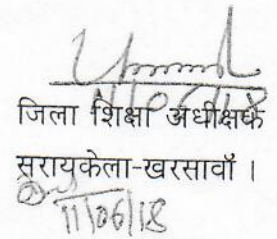 11/06/18
जिला शिक्षा अधीक्षक
सरायकेला-खरसावाँ ।
11/06/18